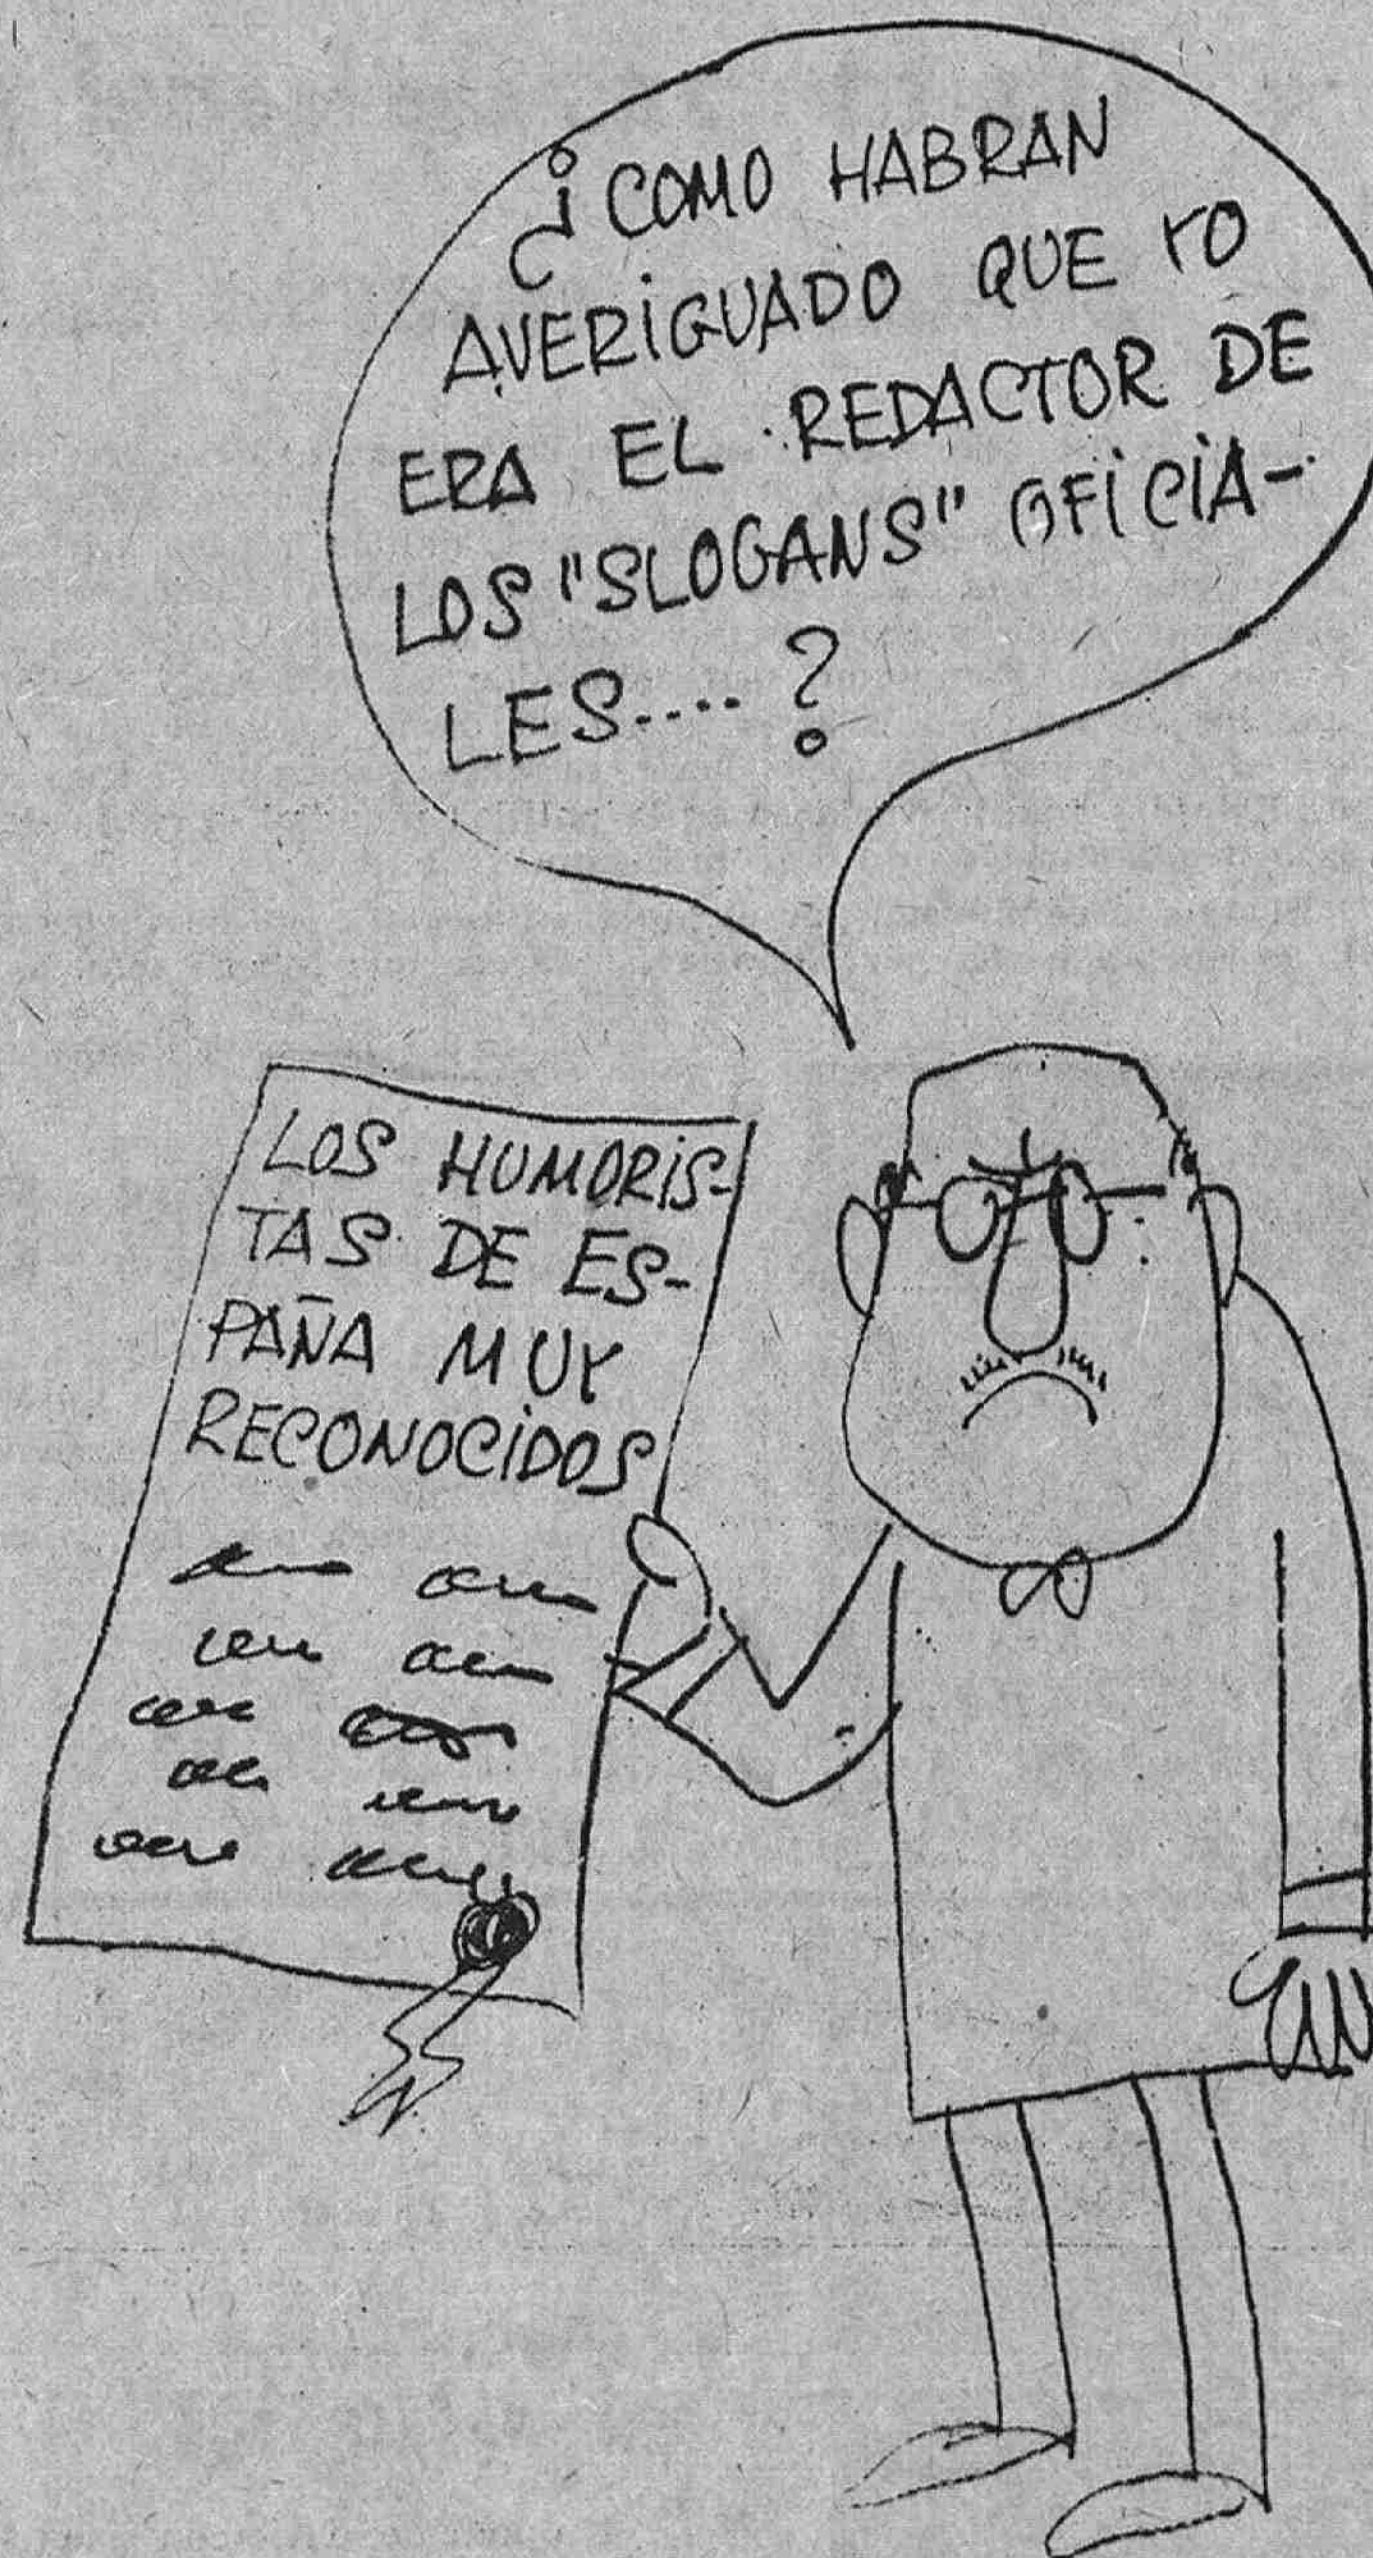 ¿COMO HABRAN
AVERIGUADO QUE YO
ERA EL REDACTOR DE
LOS "SLOGANS" OFICIA-
LES....?
LOS HUMORIS-
TAS DE ES-
PAÑA MUY
RECONOCIDOS